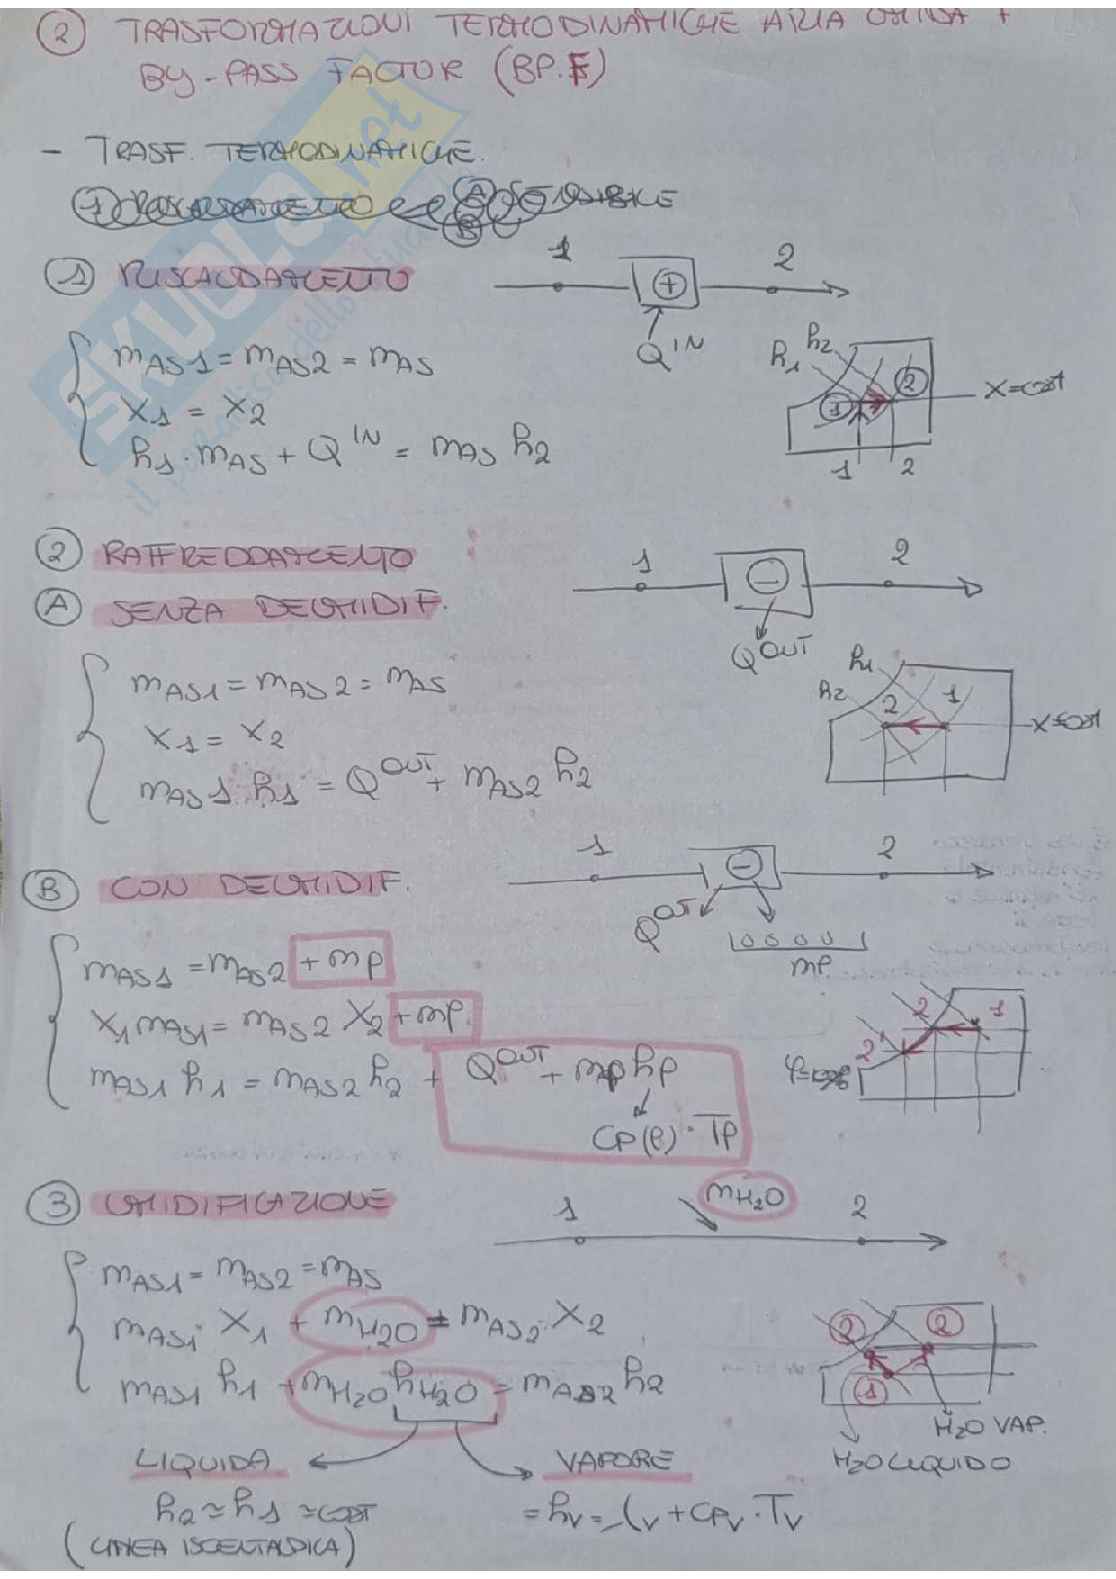 ② TRASFORMAZIONI TERMODINAMICHE ARIA UMIDA +
BY-PASS FACTOR (BP.F)
- TRASF. TERMODINAMICHE.
① RISCALDAMENTO
1 + 2
Q^IN
m_AS1 = m_AS2 = m_AS
x_1 = x_2
h_1 · m_AS + Q^IN = m_AS h_2
h_1 h_2 ① ② X=cost
1 2
② RAFFREDDAMENTO
Ⓐ SENZA DEUMIDIF.
1 − 2
Q^OUT
m_AS1 = m_AS2 = m_AS
x_1 = x_2
m_AS1 · h_1 = Q^OUT + m_AS2 h_2
h_1 h_2 2 1 X=cost
Ⓑ CON DEUMIDIF.
1 − 2
Q^OUT
mp.
m_AS1 = m_AS2 + mp
x_1 m_AS1 = m_AS2 x_2 + mp.
m_AS1 h_1 = m_AS2 h_2 + Q^OUT + mp hp
Cp(l) · Tp
2 2 1
③ UMIDIFICAZIONE
1 m_H2O 2
m_AS1 = m_AS2 = m_AS
m_AS1 · x_1 + m_H2O = m_AS2 · x_2
m_AS1 h_1 + m_H2O h_H2O = m_AS2 h_2
② ② ①
H2O VAP.
H2O LIQUIDO
LIQUIDA
h_2 ≃ h_1 ≃ cost
(LINEA ISOENTALPICA)
VAPORE
= h_v = l_v + Cp_v · T_v
SKUOLA.net